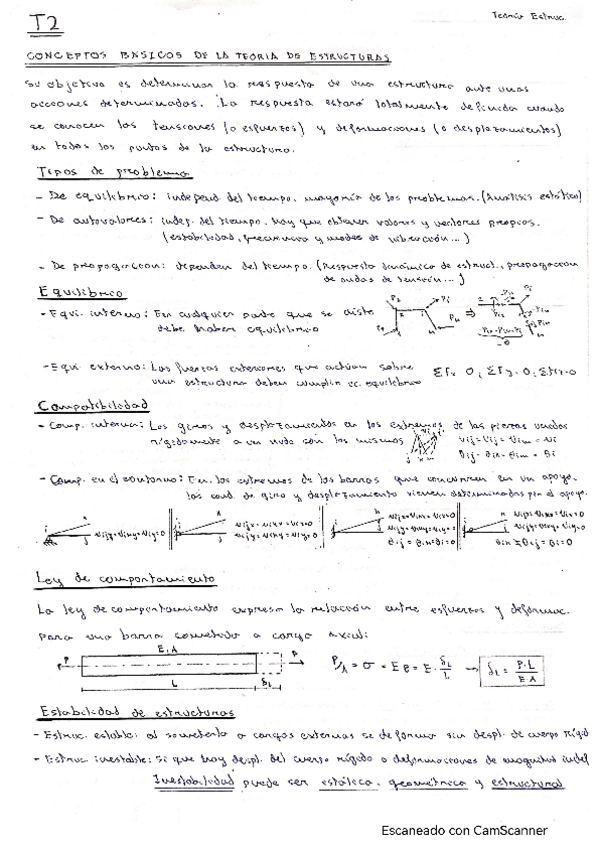 T2
Teoría Estruc.
CONCEPTOS BÁSICOS DE LA TEORIA DE ESTRUCTURAS
Su objetivo es determinar la respuesta de una estructura ante unas
acciones determinadas. La respuesta estará totalmente definida cuando
se conocen las tensiones (o esfuerzos) y deformaciones (o desplazamientos)
en todos los puntos de la estructura.
Tipos de problema
- De equilibrio: independ. del tiempo, mayoría de los problemas. (Análisis estático)
- De autovalores: indep. del tiempo, hay que obtener valores y vectores propios.
(estabilidad, frecuencia y modos de vibración...)
- De propagacion: dependen del tiempo. (Respuesta dinámica de estruct., propagacion
de ondas de tensión...)
Equilibrio
- Equi. interno: En cualquier parte que se aisle
debe haber equilibrio
- Equi. externo: Las fuerzas exteriores que actúan sobre
una estructura deben cumplir ec. equilibrio
Compatibilidad
- Comp. interna: Los giros y desplazamientos en los extremos de las piezas unidas
rígidamente a un nudo son los mismos
- Comp. en el contorno: En los extremos de las barras que concurren en un apoyo,
las cond. de giro y desplazamiento vienen determinadas por el apoyo.
Ley de comportamiento
La ley de comportamiento expresa la relación entre esfuerzos y deformac.
para una barra sometida a carga axial:
E, A
P
P
L
δL
P/A = σ = E ε = E · δL/L → δL = P·L / E·A
Estabilidad de estructuras
- Estruc. estable: al someterla a cargas externas se deforma sin despl. de cuerpo rígid
- Estruc inestable: Si que hay despl. del cuerpo rígido o deformaciones de magnitud indef
Inestabilidad puede ser estática, geométrica y estructural
Escaneado con CamScanner